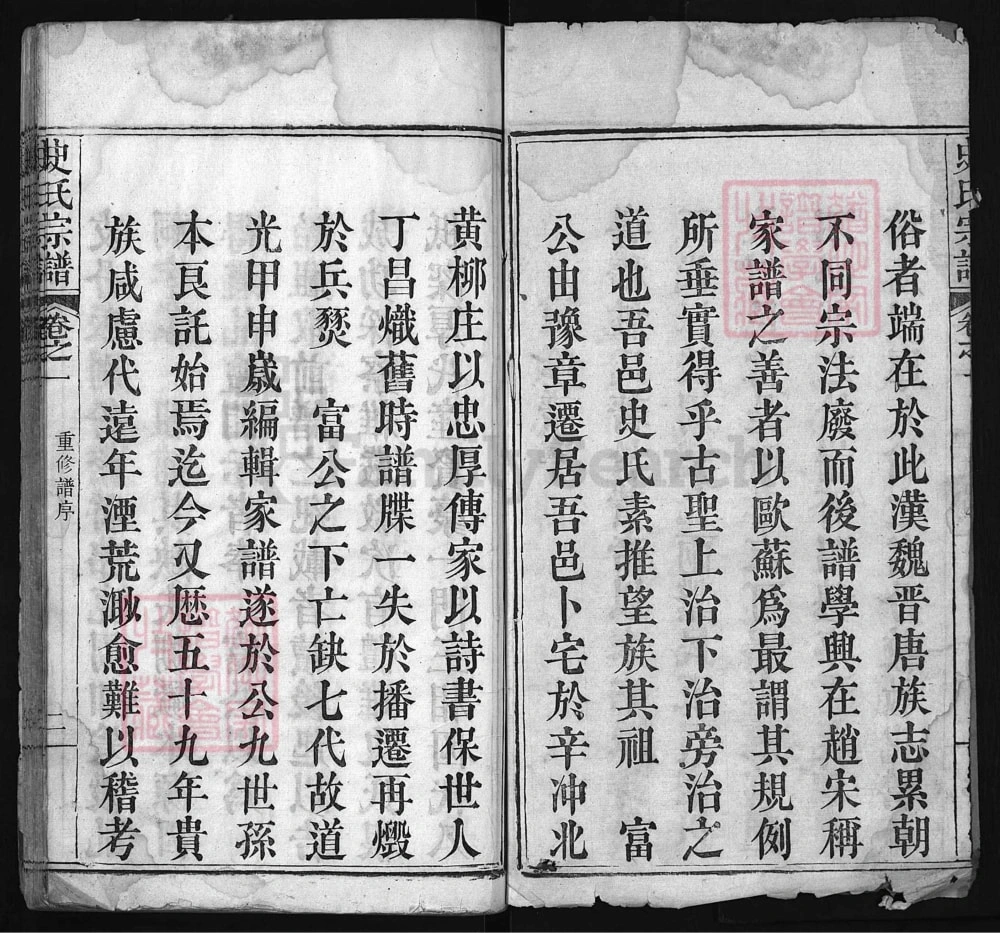 史氏宗譜
卷之一
俗者端在於此漢魏晉唐族志累朝
不同宗法廢而後譜學興在趙宋稱
家譜之善者以歐蘇爲最謂其規例
所垂實得乎古聖上治下治旁治之
道也吾邑史氏素推望族其祖 富
公由豫章遷居吾邑卜宅於辛冲北
黄柳庄以忠厚傳家以詩書保世人
丁昌熾舊時譜牒一失於播遷再燬
於兵燹 富公之下亡缺七代故道
光甲申嵗編輯家譜遂於公九世孫
本艮託始焉迄今又歴五十九年貴
族咸慮代遠年湮荒渺愈難以稽考
史氏宗譜
卷之一
重修譜序
二